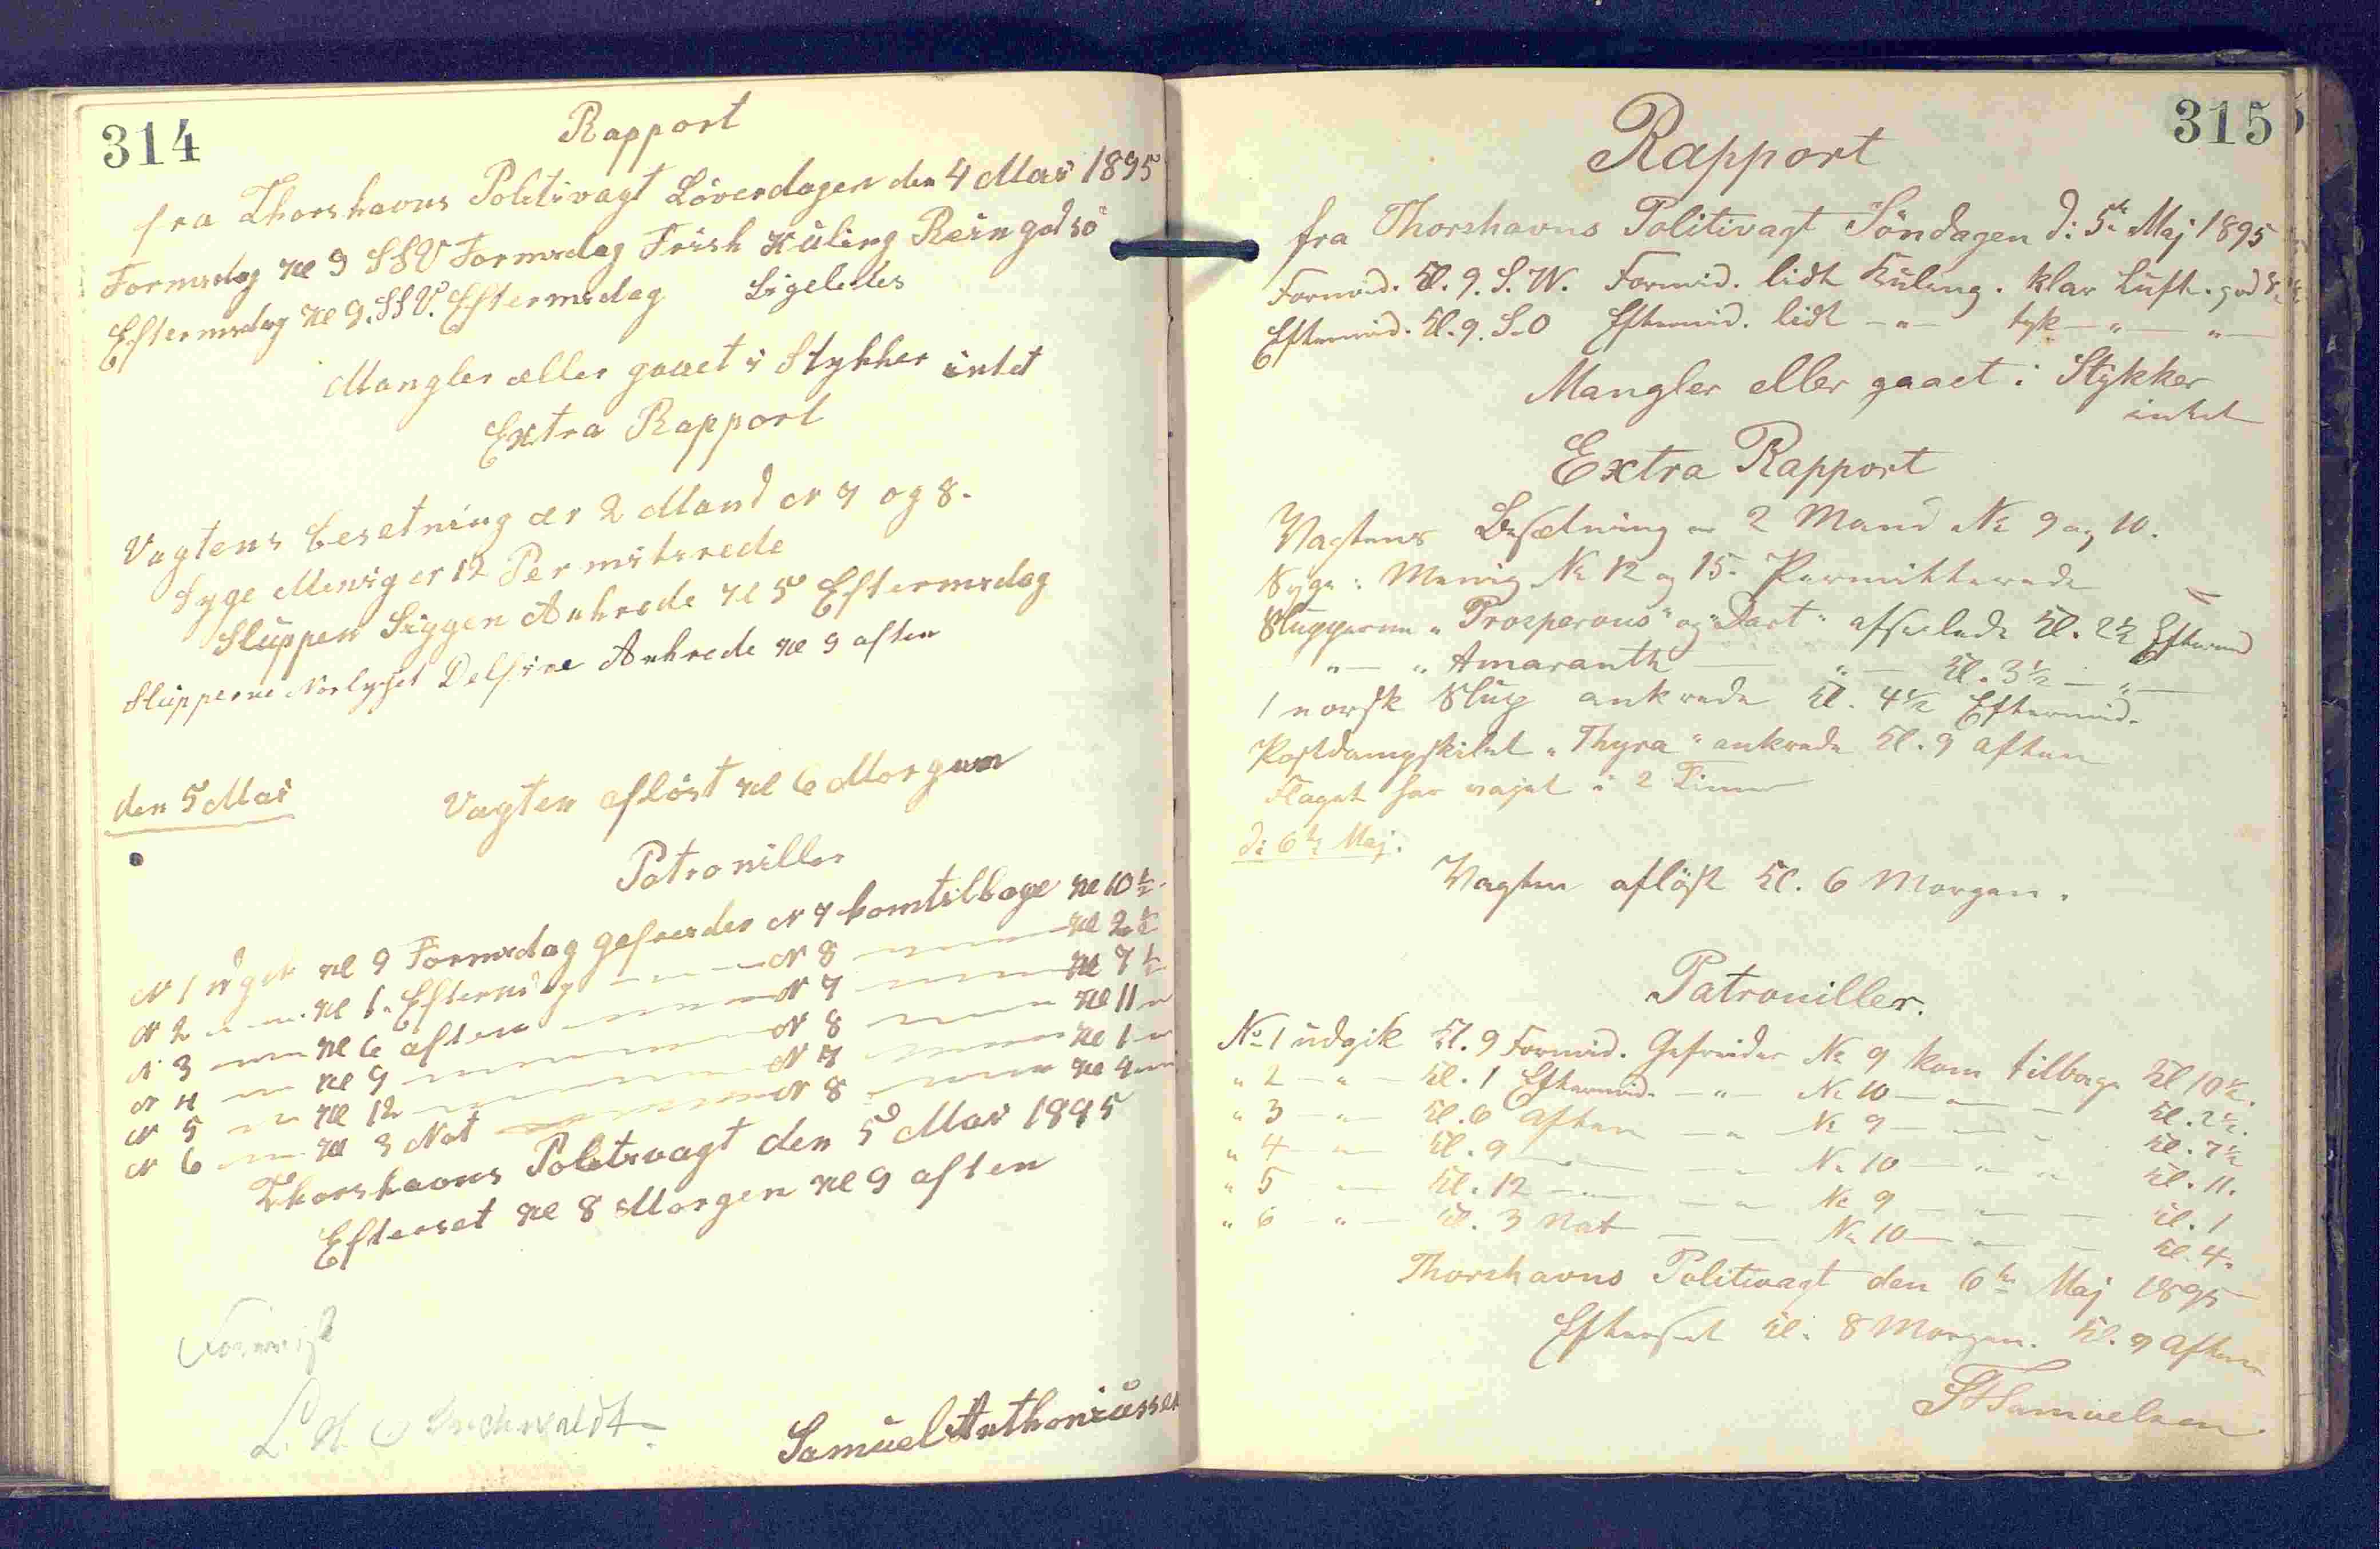 314
Rapport
fra Thorshavns Politivagt Löverdagen den 4 Mai 1895
Formidag Kl 9 SSV Formidag Frish Küling Rein god sö
Eftermidag Kl 9. SSV. Eftermidag Ligeledes
Mangler æller gaaet i Stykker intet
Extra Rapport
Vagtens besetning ær 2 Mand N 7 og 8.
Syge Menig er 12 Permiterede
Sluppen Siggen Ankrede Kl 5 Eftermidag
Slupperne Norlyset Delfine Ankrede Kl 9 aften
den 5 Mai
Vagten aflöst Kl 6 Morgen
Patroniller
N 1 Kl 9 Formidag gefreider N 7 kom tilbage Kl 10 ½
N 2 Kl 1. N 8 Kl 2 ½
N 3 Kl 6 aften N 7 Kl 7 ½
N 4 Kl 9 N 8 Kl 11
N 5 Kl 12 N 7 Kl 1
N 6 Kl 3 Nat N 8 Kl 4
Thorshavns Politivagt den 5 Mai 1895
Efterset Kl 8 Morgen Kl 9 aften
Samuel Anthoniussen
315
Rapport
fra Thorshavns Politivagt Söndagen d: 5te Maj 1895
Formid. Kl. 9. S.W. Formid. lidt Küling. klar Luft. god
Eftermid. Kl. 9. S.O Eftermid. lidt -"- tyk -"- "-
Mangler eller gaaet i Stykker
intet
Extra Rapport
Vagtens Besætning er 2 Mand No 9 og 10.
Syge: Menig No 12 og 15. Permitterede
Slupperne "Prosperous" og "Dart" afseilede Kl. 2½ Eftermid
"- "Amaranth "- Kl. 3½ -"-
1 norsk Slup ankrede Kl. 4½ Eftermid.
Postdampskibet "Thyra" ankrede Kl. 9 aften
Flaget har vajet i 2 Timer
d: 6te Maj.
Vagten aflöst Kl. 6 Morgen.
Patrouiller.
No 1 udgik Kl. 9 Formid. Gefreider No 9 kom tilbage Kl 10½.
" 2 -"- Kl. 1 Eftermid. -"- No 10 Kl. 2½.
" 3 -"- Kl. 6 Aften -"- No 9 Kl. 7½
" 4 -"- Kl. 9 -"- No 10 Kl. 11.
" 5 -"- Kl. 12 -"- No 9 Kl. 1
" 6 -"- Kl. 3 Nat No 10 Kl. 4.
Thorshavns Politivagt den 6te Maj 1895
Efterset Kl. 8 Morgen. Kl. 9 Aften
Samuelsen